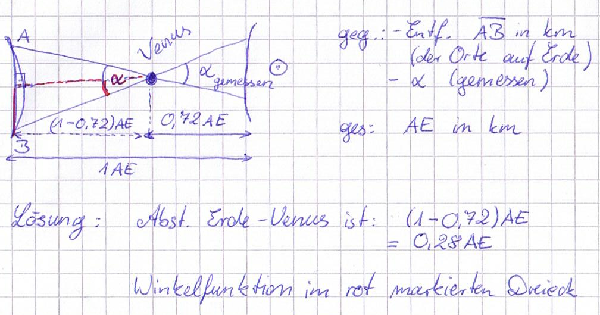 A
Venus
α
α gemessen
☉
B
(1-0,72)AE
0,72AE
1AE
geg.: - Entf. AB in km
(der Orte auf Erde)
- α (gemessen)
ges: AE in km
Lösung: Abst. Erde-Venus ist: (1-0,72)AE
= 0,28AE
Winkelfunktion im rot markierten Dreieck